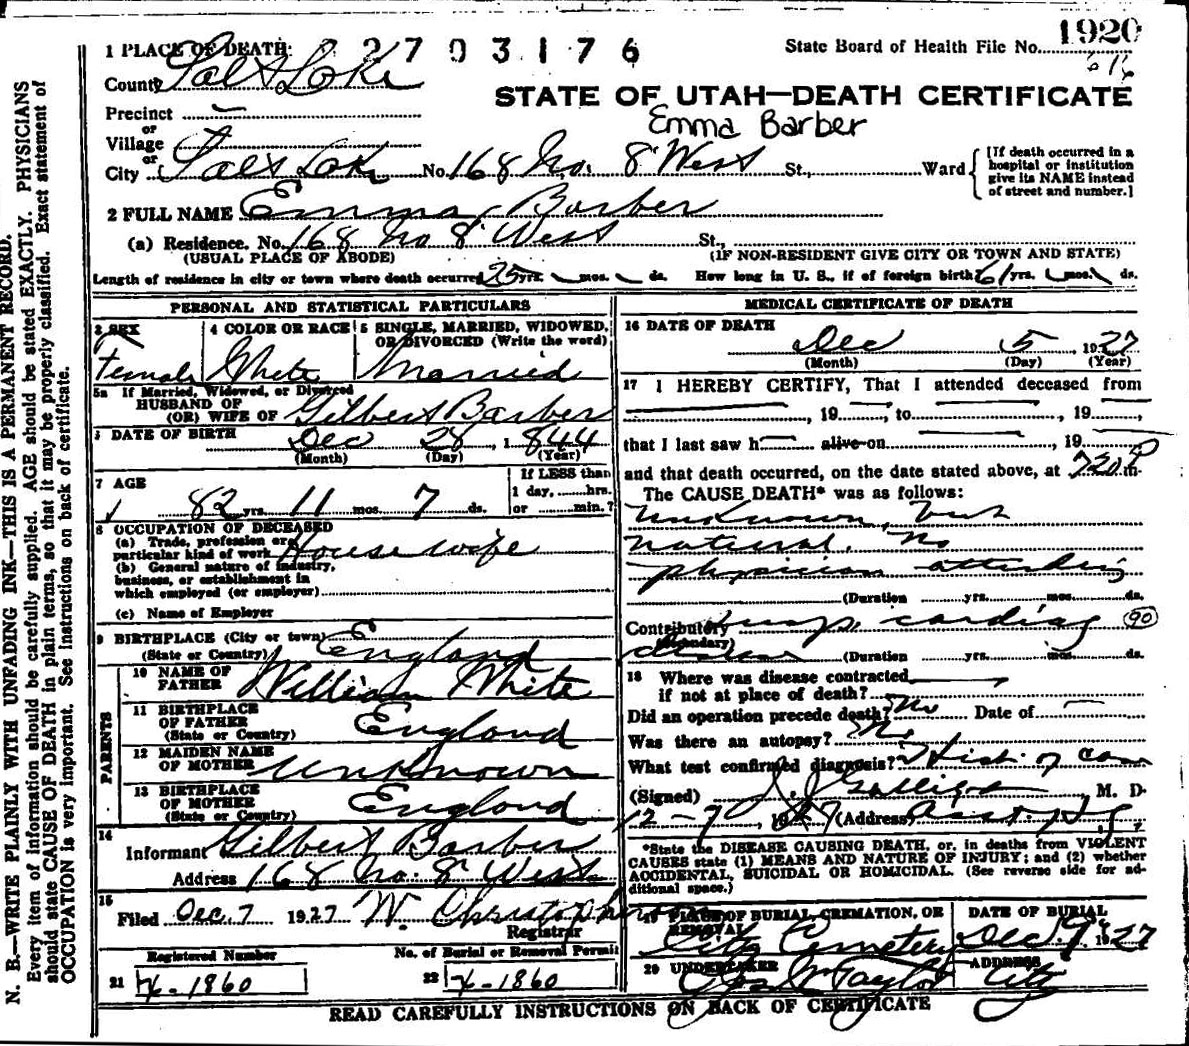 1920
1 PLACE OF DEATH: 2703176 State Board of Health File No. 616
County Salt Lake
STATE OF UTAH—DEATH CERTIFICATE
Precinct
or
Emma Barber
Village
or
City Salt Lake No. 168 No. 8 West St., Ward
[If death occurred in a hospital or institution give its NAME instead of street and number.]
2 FULL NAME Emma Barber
(a) Residence. No. 168 No 8 West St.,
(USUAL PLACE OF ABODE) (IF NON-RESIDENT GIVE CITY OR TOWN AND STATE)
Length of residence in city or town where death occurred 25 yrs. mos. ds. How long in U. S., if of foreign birth? 61 yrs. mos. ds.
PERSONAL AND STATISTICAL PARTICULARS
3 SEX 4 COLOR OR RACE 5 SINGLE, MARRIED, WIDOWED, OR DIVORCED (Write the word)
Female White Married
5a If Married, Widowed, or Divorced
HUSBAND OF
(OR) WIFE OF Gilbert Barber
DATE OF BIRTH Dec 28 1844
(Month) (Day) (Year)
7 AGE If LESS than
1 day,......hrs.
82 yrs. 11 mos. 7 ds. or ......min.?
8 OCCUPATION OF DECEASED
(a) Trade, profession or
particular kind of work Housewife
(b) General nature of industry,
business, or establishment in
which employed (or employer)
(c) Name of Employer
9 BIRTHPLACE (City or town)
(State or Country) England
PARENTS
10 NAME OF FATHER William White
11 BIRTHPLACE OF FATHER
(State or Country) England
12 MAIDEN NAME OF MOTHER Unknown
13 BIRTHPLACE OF MOTHER
(State or Country) England
14
Informant Gilbert Barber
Address 168 No. 8 West
15
Filed Dec. 7 1927 W. Christopherson
Registrar
Registered Number No. of Burial or Removal Permit
21 X-1860 22 X-1860
MEDICAL CERTIFICATE OF DEATH
16 DATE OF DEATH
Dec 5 1927
(Month) (Day) (Year)
17 I HEREBY CERTIFY, That I attended deceased from
, 19 to , 19
that I last saw h alive on , 19
and that death occurred, on the date stated above, at 720 P m.
The CAUSE DEATH* was as follows:
Unknown, but
natural. No
physician attending
(Duration yrs. mos. ds.
Contributory cardiac 90
(Secondary)
disease (Duration yrs. mos. ds.
18 Where was disease contracted
if not at place of death?
Did an operation precede death? No Date of
Was there an autopsy? No
What test confirmed diagnosis? Hist of Case
(Signed) J. J. Galligan M. D.
12-7, 1927 (Address)
*State the DISEASE CAUSING DEATH, or, in deaths from VIOLENT
CAUSES state (1) MEANS AND NATURE OF INJURY; and (2) whether
ACCIDENTAL, SUICIDAL OR HOMICIDAL. (See reverse side for ad-
ditional space.)
19 PLACE OF BURIAL, CREMATION, OR REMOVAL DATE OF BURIAL
City Cemetery Dec. 9, 1927
20 UNDERTAKER ADDRESS
Jos. Wm Taylor City
READ CAREFULLY INSTRUCTIONS ON BACK OF CERTIFICATE
N. B.—WRITE PLAINLY WITH UNFADING INK—THIS IS A PERMANENT RECORD.
Every item of information should be carefully supplied. AGE should be stated EXACTLY. PHYSICIANS
should state CAUSE OF DEATH in plain terms, so that it may be properly classified. Exact statement of
OCCUPATION is very important. See instructions on back of certificate.